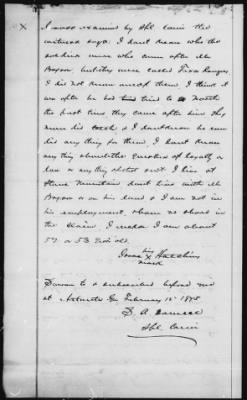 X I was examined by Spl. Com. the
witness says. I don't know who the
soldiers were who came after Mr
but they were called Texas Rangers
I did not know any of them I think it
was after he had tried to North
the first time, they came after him this
was his and I don't know he ever
did any thing for them, I don't know
any thing about the question of loyalty or
law or any thing about it I live at
Stone Mountain don't live with Mr
or on his land & I am not in
his employment. I have no share in
the claim. I reckon I am about
52 or 53 Years old.
his
Isaac X Hutchins
mark
Sworn to & subscribed before me
at Atlanta Ga February 12 1875
Spl. Com.